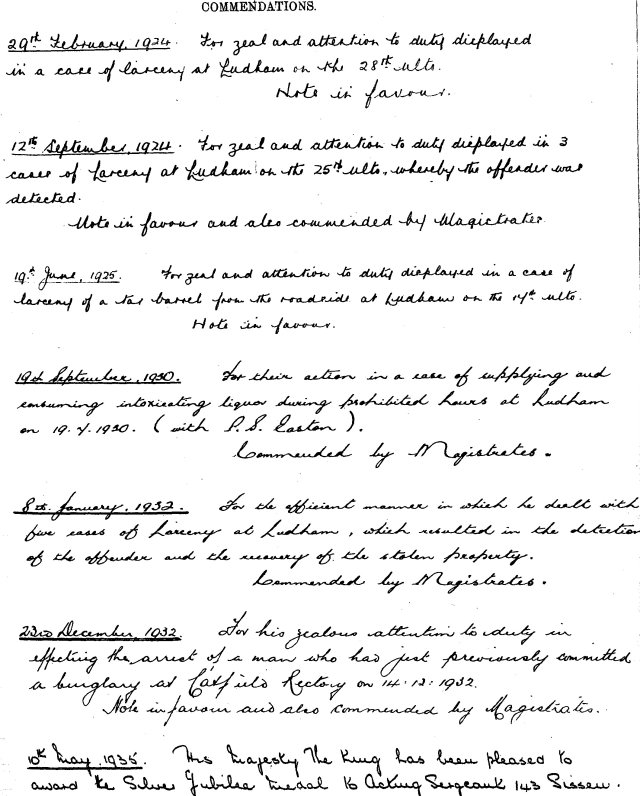 COMMENDATIONS.
29th February, 1924. For zeal and attention to duty displayed
in a case of larceny at Ludham on the 28th ulto.
Note in favour.
12th September, 1924. For zeal and attention to duty displayed in 3
cases of Larceny at Ludham on the 25th ulto, whereby the offender was
detected.
Note in favour and also commended by Magistrates
19th June, 1925. For zeal and attention to duty displayed in a case of
larceny of a tar barrel from the roadside at Ludham on the 14th ulto.
Note in favour.
19th September, 1930. For their action in a case of supplying and
consuming intoxicating liquor during prohibited hours at Ludham
on 19.7.1930. (with P.S. Easton).
Commended by Magistrates.
8th January, 1932. For the efficient manner in which he dealt with
five cases of Larceny at Ludham, which resulted in the detection
of the offender and the recovery of the stolen property.
Commended by Magistrates.
23rd December, 1932. For his zealous attention to duty in
effecting the arrest of a man who had just previously committed
a burglary at Catfield Rectory on 14.12.1932.
Note in favour and also commended by Magistrates.
10th May, 1935. His Majesty The King has been pleased to
award the Silver Jubilee medal to Acting Sergeant 143 Sissen.